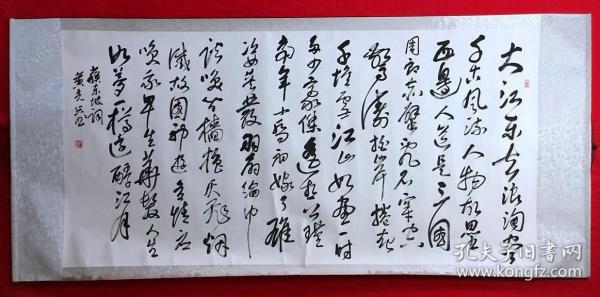 大江东去浪淘尽
千古风流人物故垒
西邊人道是三國
周郎赤壁乱石穿空
驚濤拍岸捲起
千堆雪江山如画一时
多少豪傑遥想公瑾
當年小喬初嫁了雄
姿英發羽扇纶巾
谈笑间樯橹灰飛烟
滅故國神游多情应
笑我早生華髮人生
如梦一樽还酹江月
蘇东坡词
孔夫子旧书网
www.kongfz.com